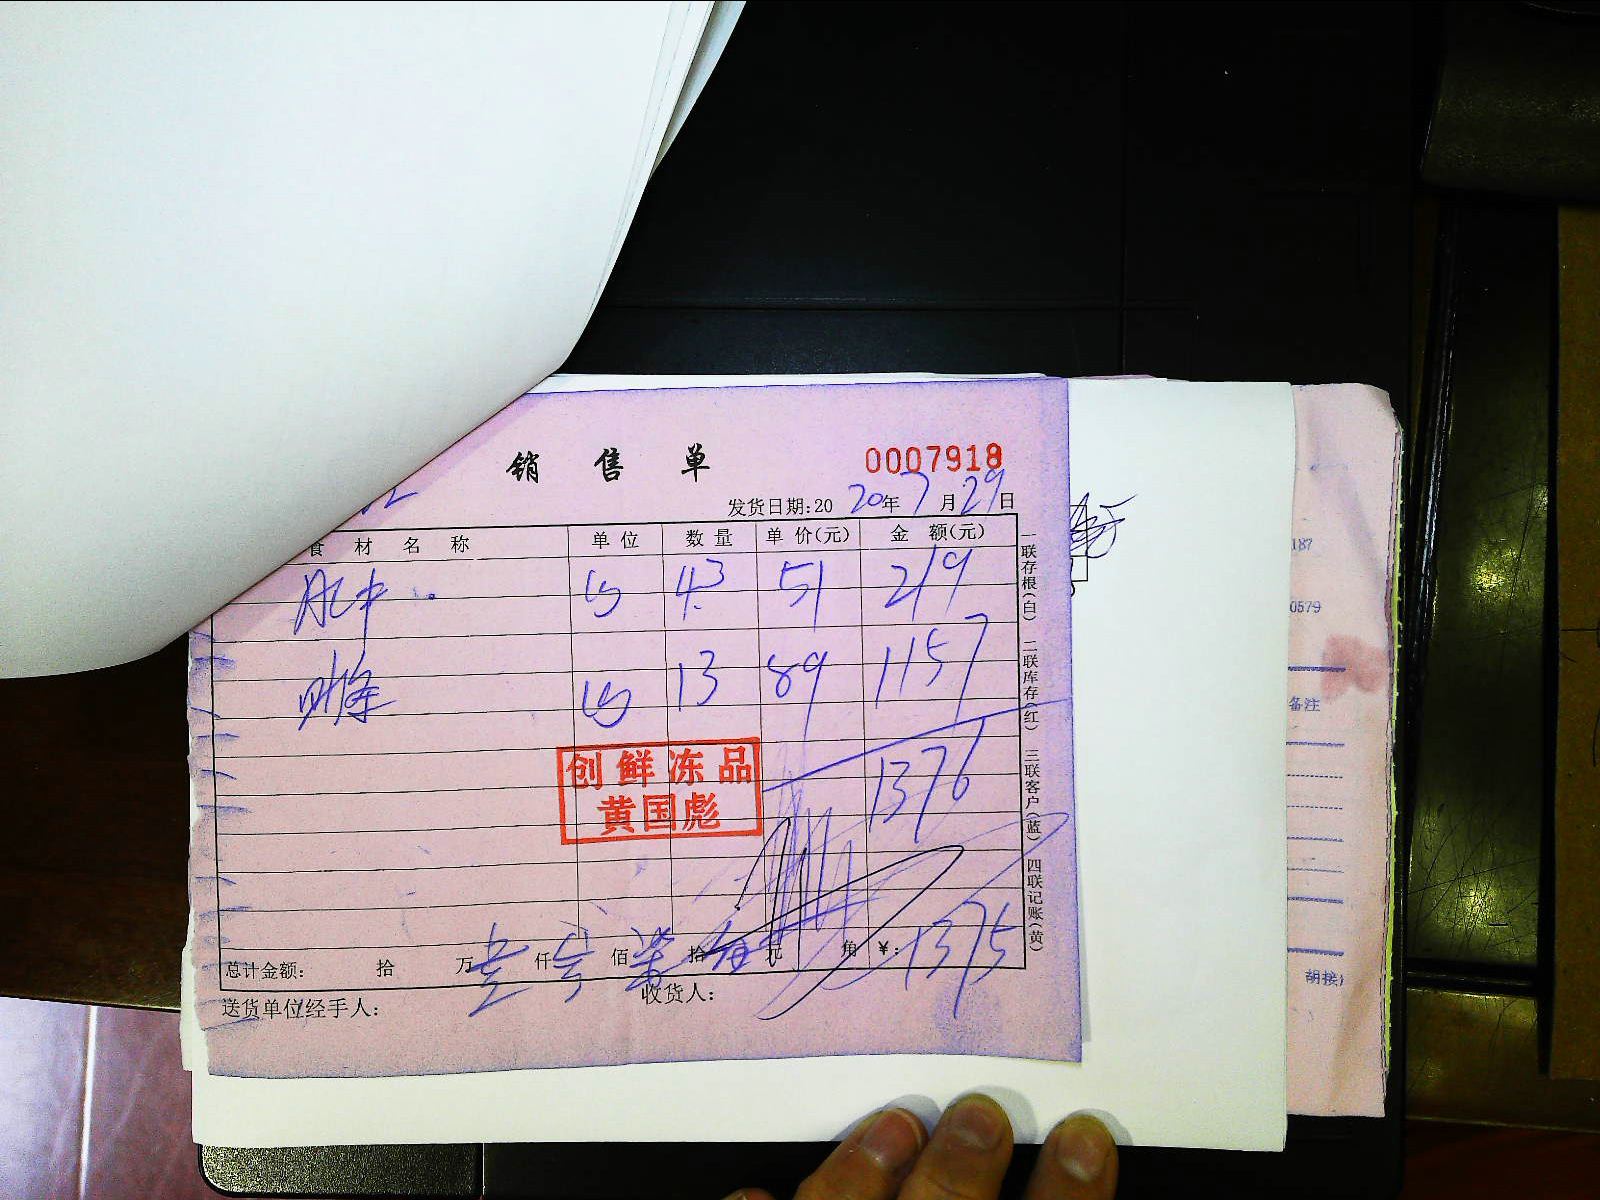 销售单
0007918
发货日期:2020年7月29日
食材名称 单位 数量 单价(元) 金额(元)
4.3 51 219
13 89 1157
1376
创鲜冻品
黄国彪
总计金额: 拾 万 壹 仟 叁 佰 柒 拾 伍 元 角 ¥: 1375
送货单位经手人: 收货人:
一联存根(白) 二联库存(红) 三联客户(蓝) 四联记账(黄)
187
0579
备注
胡接